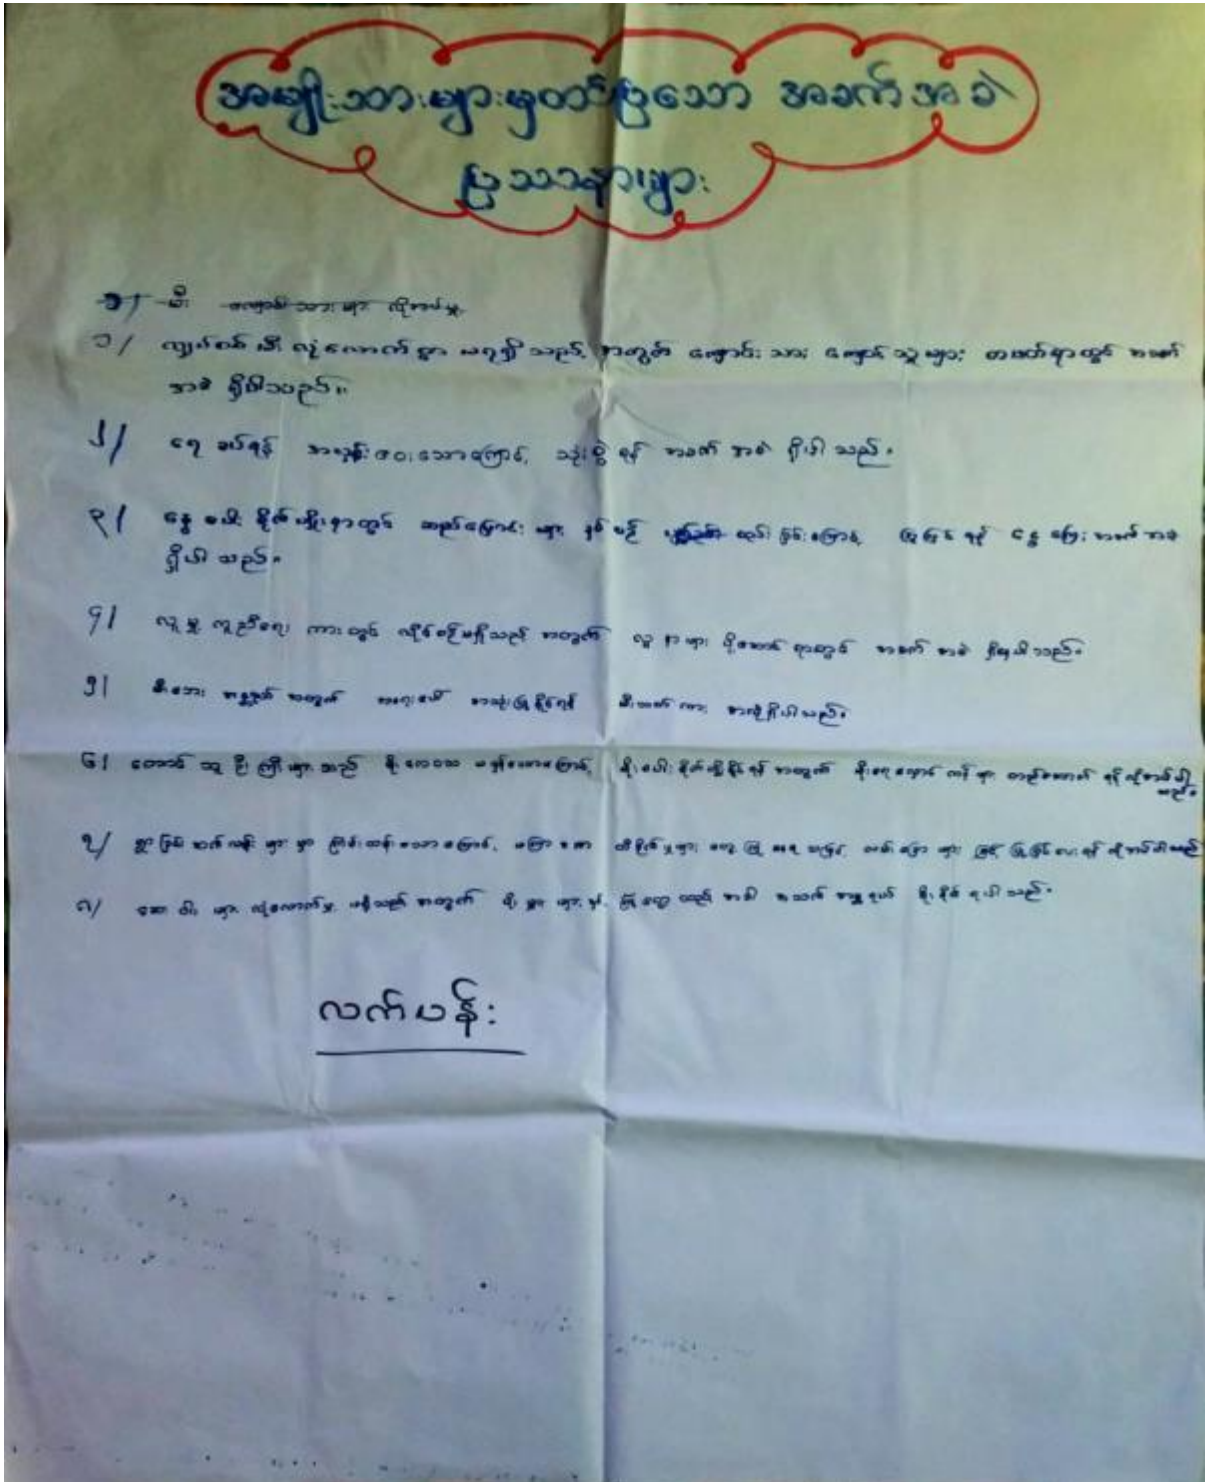 အမျိုးသားများမှတင်ပြသော အခက်အခဲ
ပြဿနာများ
၁/ မီး ကျောင်းသားများ လိုအပ်မှု
၁/ လျှပ်စစ်မီး လုံလောက်စွာ မရရှိသည့်အတွက် ကျောင်းသား ကျောင်းသူများ စာဖတ်ရာတွင် အခက်
အခဲ ရှိပါသည်။
၂/ ရေ ခပ်ရန် အလှမ်းဝေးသောကြောင့် သုံးစွဲရန် အခက် အခဲ ရှိပါ သည်။
၃/ နွေ စပါး စိုက်ပျိုးရာတွင် ဆည်မြောင်း များ နှစ်စဉ် ပြုပြင် ရန် ငွေ ကြေး အခက်အခဲ
ရှိပါ သည်။
၄/ လူမှု ကူညီရေး ကားတွင် လိုင်စင်မရှိသည့် အတွက် လူနာများ ပို့ဆောင် ရာတွင် အခက် အခဲ ရှိရပါသည်။
၅/ မီးဘေး အန္တရာယ် အတွက် အရေးပေါ် အသုံးပြုနိုင်ရန် မီးသတ်ကား အလိုရှိပါသည်။
၆/ တောင်သူ ဦးကြီးများသည် မိုးလေဝသ မမှန်သောကြောင့် မိုးစပါး စိုက်ပျိုးနိုင်ရန် အတွက် မိုးရေလှောင်ကန် များ တည်ဆောက် ရန် လိုအပ်ပါ
သည်။
၇/ ရွာမြစ် ဆက်လမ်း များ မှာ ကြမ်းတမ်းသောကြောင့် မကြာခဏ ထိခိုက်မှုများ တွေ့ကြုံ နေရ သဖြင့် ပြုပြင်ပေးရန် လိုအပ်ပါသည်
၈/ ဆေး ဝါး များ လုံလောက်မှု မရှိသည့် အတွက် ကြုံတွေ့ ရသည့် အခါ အသက် အန္တရာယ် စိုးရိမ် ရပါ သည်။
လက်ပန်း